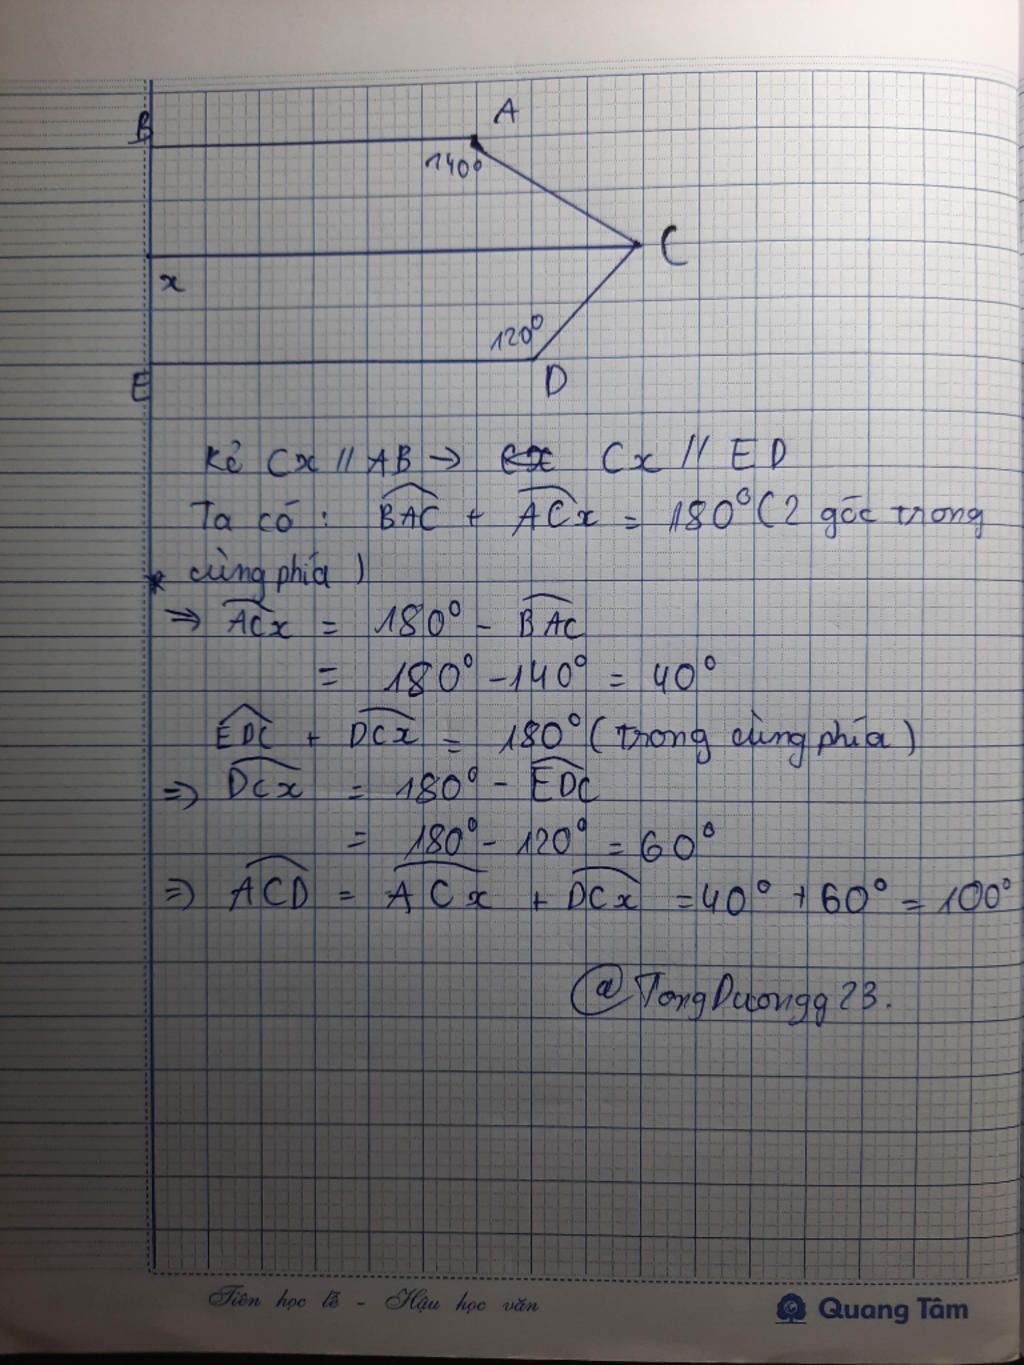 B
A
140⁰
C
x
120⁰
E
D
Kẻ Cx // AB → Cx // ED
Ta có: BAC + ACx = 180⁰ (2 góc trong
cùng phía)
⇒ ACx = 180⁰ - BAC
= 180⁰ - 140⁰ = 40⁰
EDC + DCx = 180⁰ (trong cùng phía)
⇒ DCx = 180⁰ - EDC
= 180⁰ - 120⁰ = 60⁰
⇒ ACD = ACx + DCx = 40⁰ + 60⁰ = 100⁰
@TongDuongg23.
Tiên học lễ - Hậu học văn
Quang Tâm